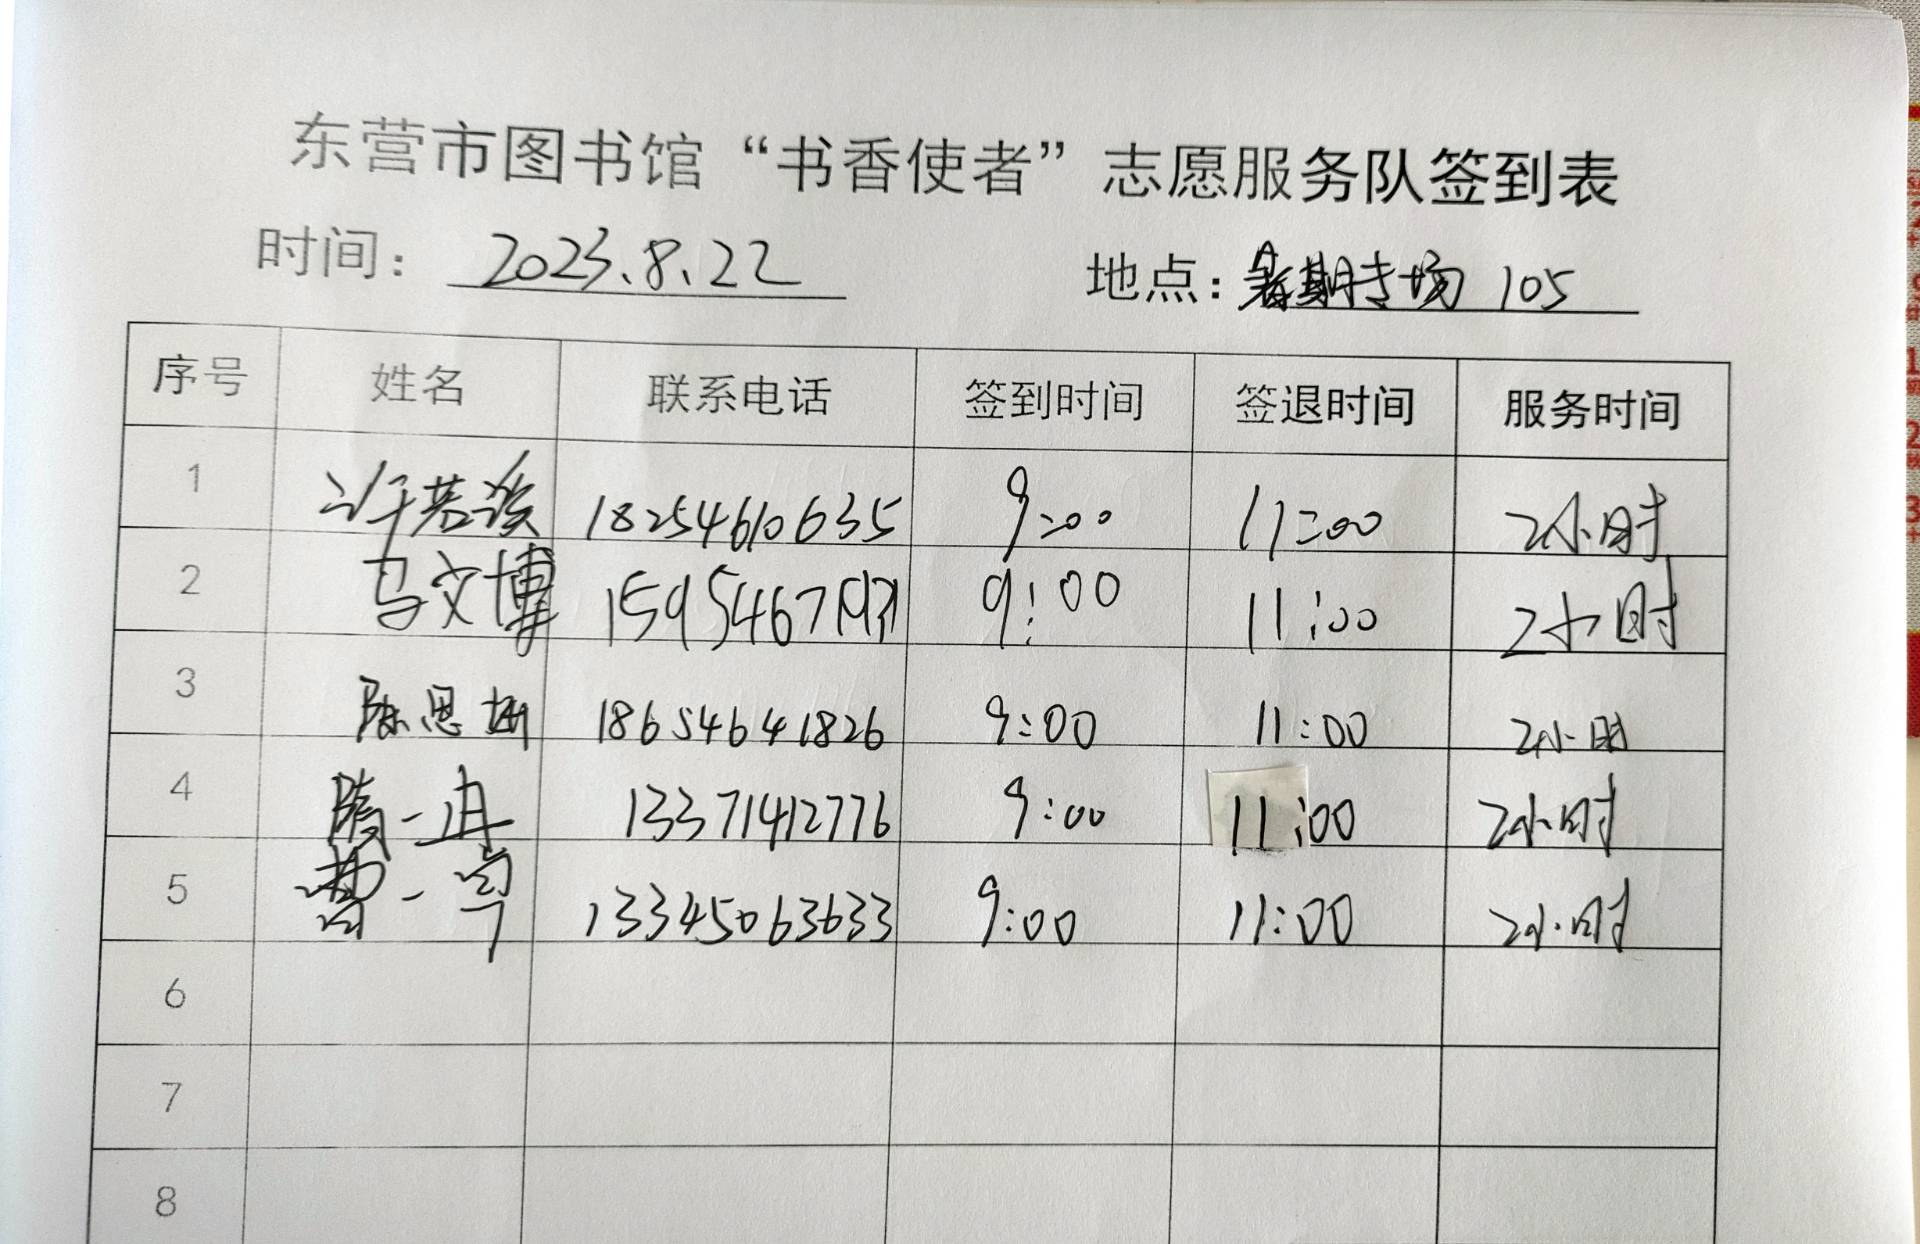 东营市图书馆“书香使者”志愿服务队签到表
时间：2023.8.22 地点：暑期专场 105
序号 姓名 联系电话 签到时间 签退时间 服务时间
1 许若涵 18254610635 9:00 11:00 2小时
2 马文博 15954671971 9:00 11:00 2小时
3 陈思 18654641826 9:00 11:00 2小时
4 隋一冉 13371412776 9:00 11:00 2小时
5 一 13345063633 9:00 11:00 2小时
6
7
8